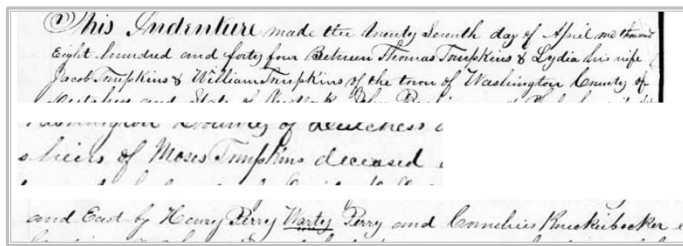 This Indenture made the twenty Seventh day of April one thousand
Eight hundred and forty four Between Thomas Tompkins & Lydia his wife
Jacob Tompkins & William Tompkins of the town of Washington County of
Dutchess and State of
Washington County of Dutchess
heirs of Moses Tompkins deceased
and East by Henry Perry Warty Perry and Cornelius Knickerbocker